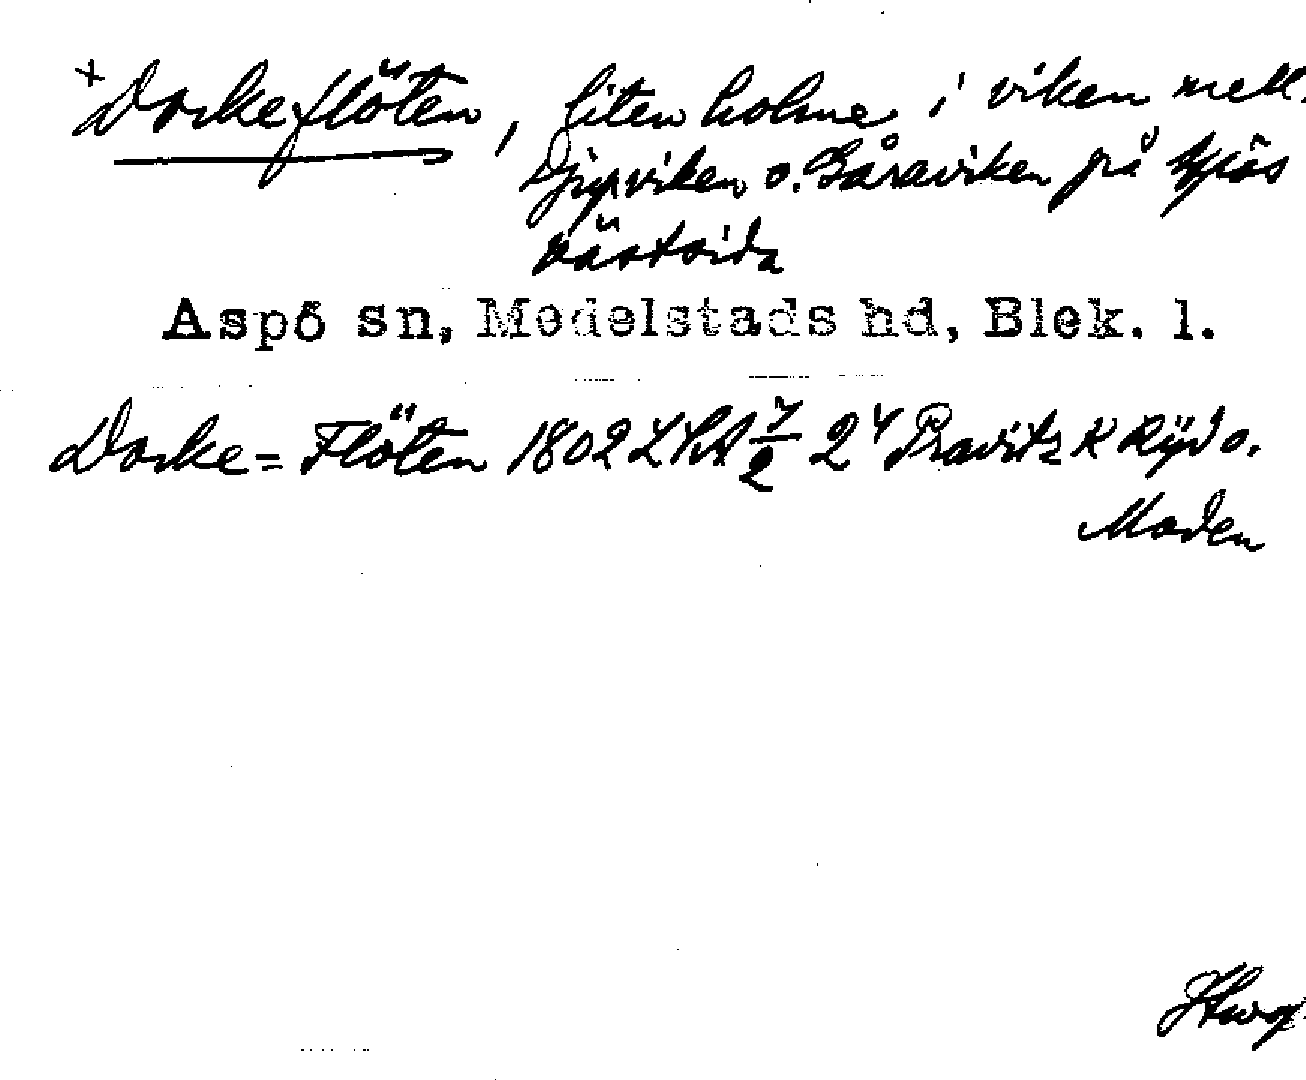 +Dorkeflöten, liten holme i viken mell.
Djupviken o. Gåraviken på Kjös
västsida
Aspö sn, Medelstads hd, Blek. l.
Dorke=Flöten 1802 LMA 7/2 24 Pravitz K Ryd o.
Moden